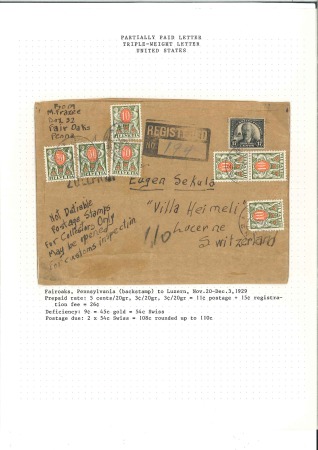 PARTIALLY PAID LETTER
TRIPLE-WEIGHT LETTER
UNITED STATES
From
M. Frazee
Box 22
Fair Oaks
Penna
REGISTERED
NO. 194
17
10
10
10
10
10
10
10
HELVETIA
HELVETIA
HELVETIA
Eugen Sekula
"Villa Heimeli"
110
Lucerne
Switzerland
Not Dutiable
Postage Stamps
For Collectors Only
May be opened
for customs inspection
Fairoaks, Pennsylvania (backstamp) to Luzern, Nov.20-Dec.3,1929
Prepaid rate: 5 cents/20gr, 3c/20gr, 3c/20gr = 11c postage + 15c registra-
tion fee = 26c
Deficiency: 9c = 45c gold = 54c Swiss
Postage due: 2 x 54c Swiss = 108c rounded up to 110c